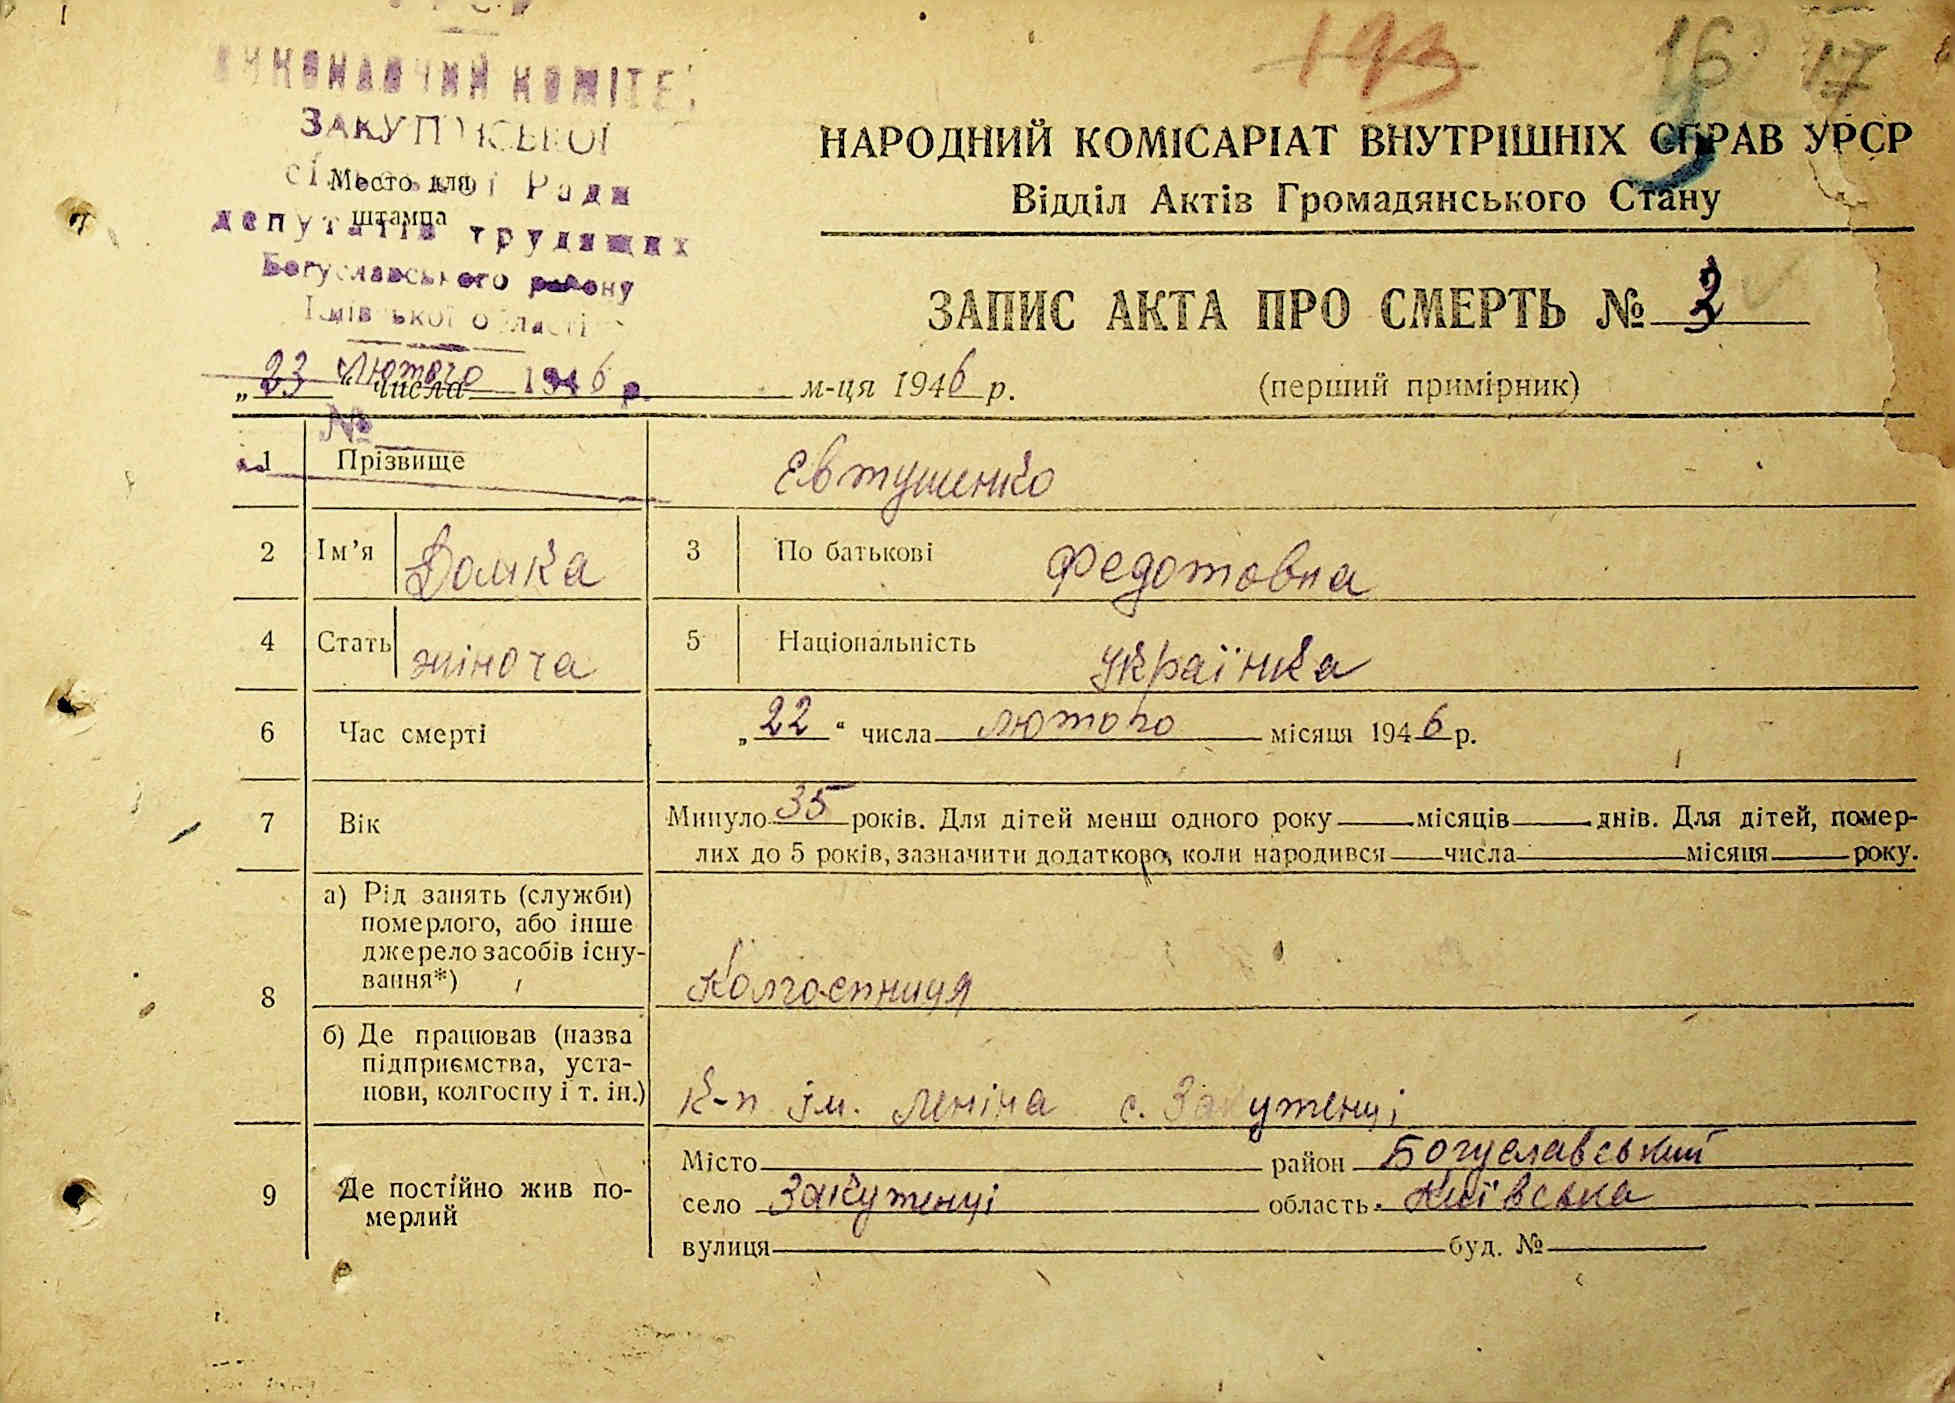 193 16 17
ВИКОНАЮЧИЙ КОМІТЕТ
ЗАКУТИНСЬКОЇ
сільської Ради
Место для
штампа
депутатів трудящих
Богуславського району
Київської області
НАРОДНИЙ КОМІСАРІАТ ВНУТРІШНІХ СПРАВ УРСР
Відділ Актів Громадянського Стану
ЗАПИС АКТА ПРО СМЕРТЬ № 2
„23“ числа лютого 1946 р. м-ця 1946 р. (перший примірник)
№
1 Прізвище Евтушенко
2 Ім’я Домка 3 По батькові Федотовна
4 Стать жіноча 5 Національність українка
6 Час смерті „22“ числа лютого місяця 1946 р.
7 Вік Минуло 35 років. Для дітей менш одного року місяців днів. Для дітей, помер-
лих до 5 років, зазначити додатково, коли народився числа місяця року.
8 а) Рід занять (служби)
померлого, або інше
джерело засобів існу-
вання*) Колгоспниця
б) Де працював (назва
підприємства, уста-
нови, колгоспу і т. ін.) К-п ім. Леніна с. Закутенці
9 Де постійно жив по-
мерлий
Місто район Богуславський
село Закутенці область Київська
вулиця буд. №